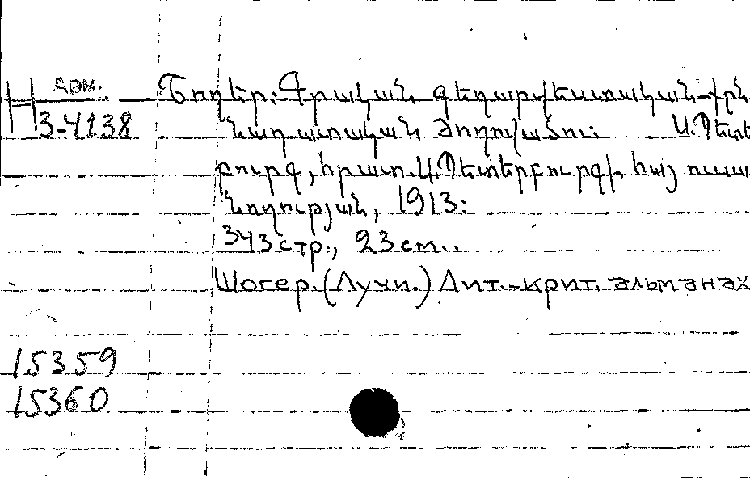 Арм.
3-4138
Շողեր: Գրական գեղարվեստական-քն
նադատական ժողովածու: Ս. Պետե
բուրգ, հրատ. Ս. Պետերբուրգի հայ ուսա
նողության, 1913:
343 стр., 23 см..
Шогер. (Лучи.) Лит.-крит. альманах
15359
15360